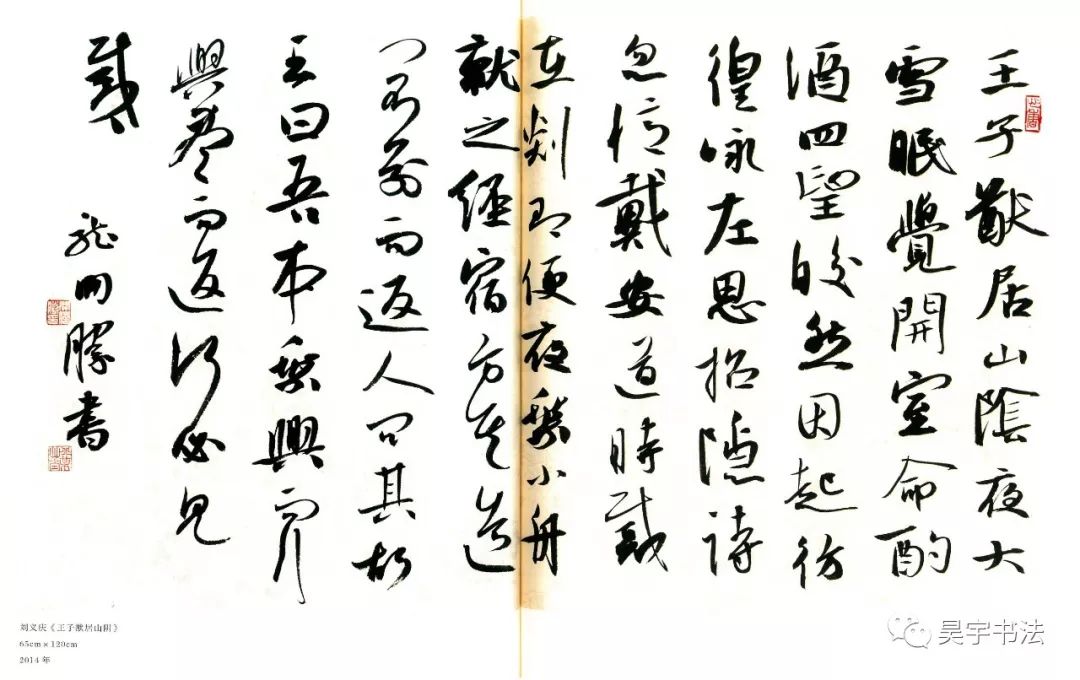 王子猷居山陰夜大
雪眠覺開室命酌
酒四望皎然因起彷
徨咏左思招隱詩
忽憶戴安道時戴
在剡即便夜乘小舟
就之經宿方至造
門不前而返人問其故
王曰吾本乘興而行
興盡而返何必見
戴
龍開勝書
刘义庆《王子猷居山阴》
65cm×120cm
2014年
昊宇书法